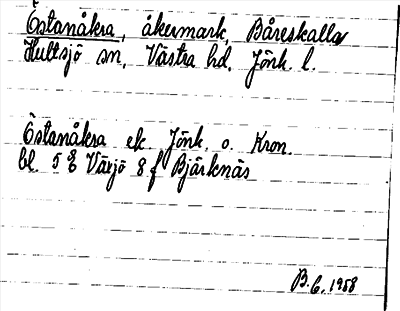 Östanåkra, åkermark, Båreskalla
Hultsjö sn, Västra hd, Jönk. l.
Östanåkra ek. Jönk. o. Kron.
bl. 5 E Växjö 8 f Bjärknäs
B.G. 1958